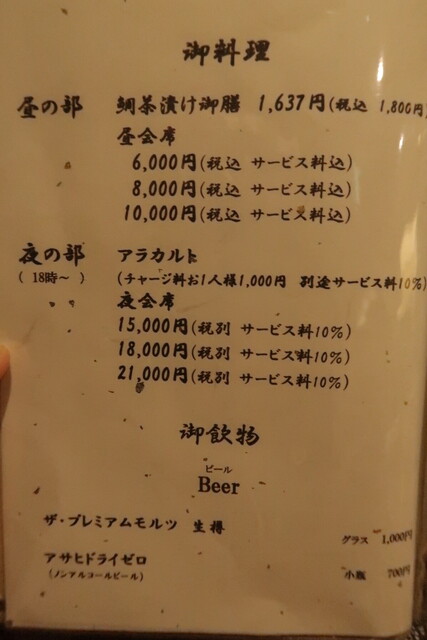 御料理
昼の部 鯛茶漬け御膳 1,637円(税込 1,800円
昼会席
6,000円(税込 サービス料込)
8,000円(税込 サービス料込)
10,000円(税込 サービス料込)
夜の部 アラカルト
( 18時〜 ) (チャージ料お1人様1,000円 別途サービス料10%)
夜会席
15,000円(税別 サービス料10%)
18,000円(税別 サービス料10%)
21,000円(税別 サービス料10%)
御飲物
ビール
Beer
ザ・プレミアムモルツ 生樽
グラス 1,000円
アサヒドライゼロ
(ノンアルコールビール)
小瓶 700円